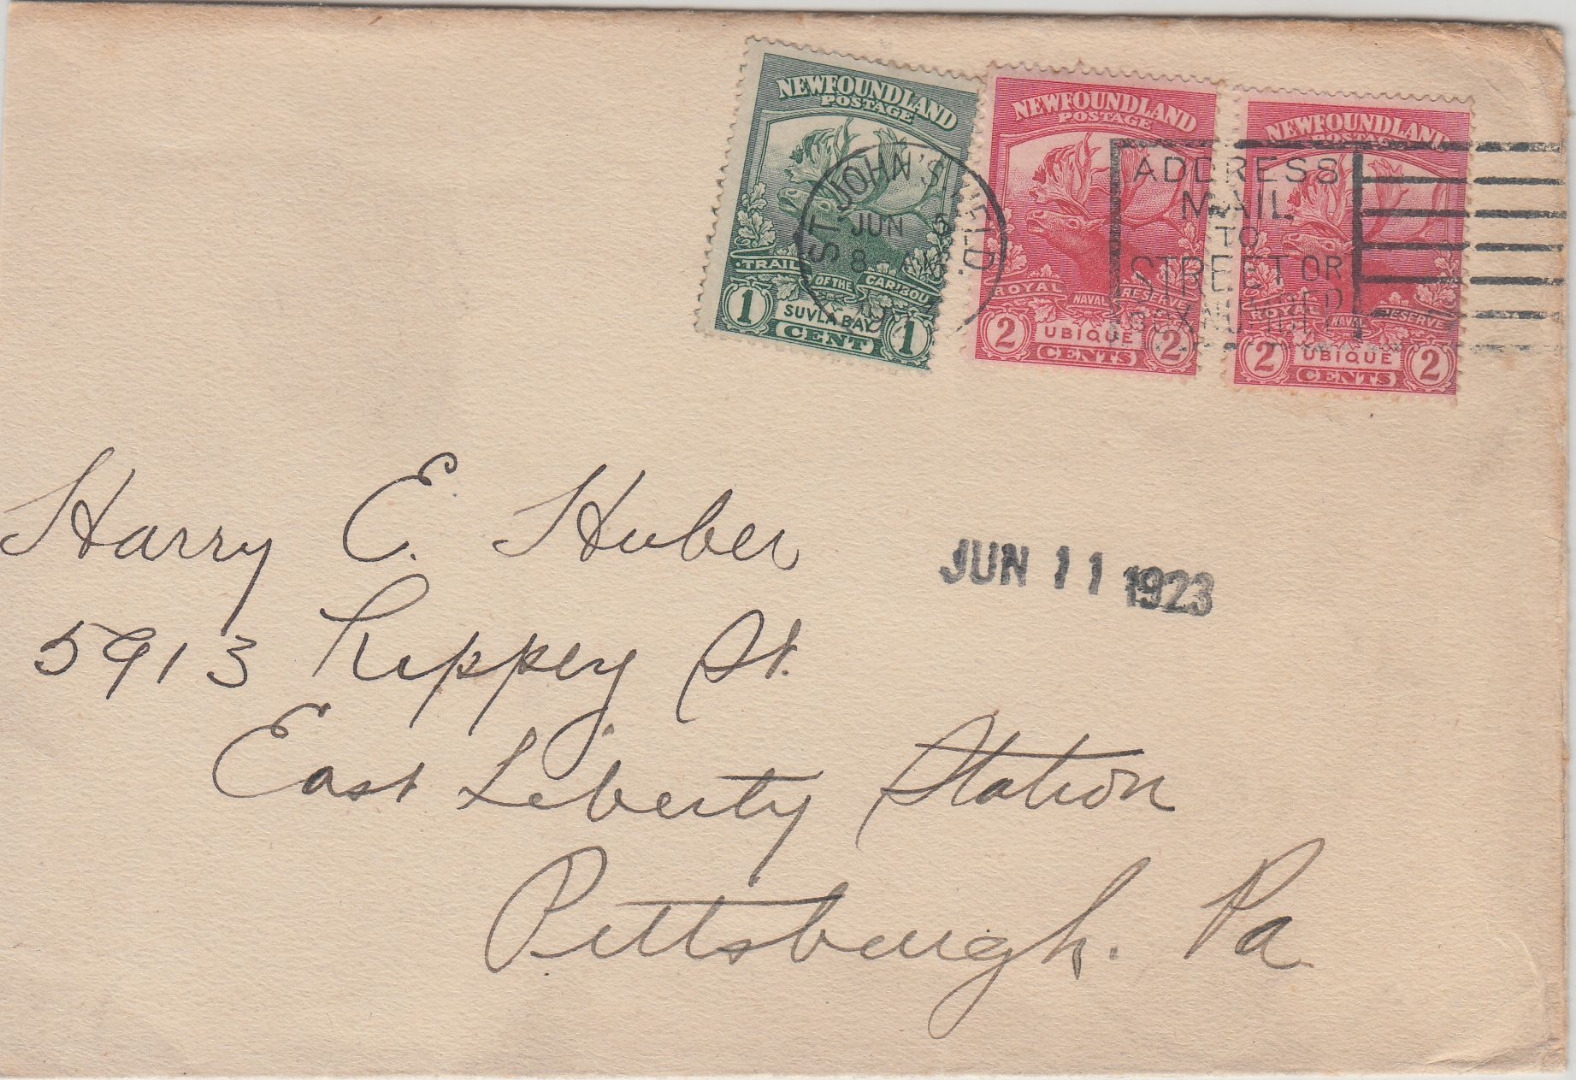 NEWFOUNDLAND
POSTAGE
TRAIL OF THE CARIBOU
SUVLA BAY
1 CENT 1
NEWFOUNDLAND
POSTAGE
ROYAL NAVAL RESERVE
UBIQUE
2 CENTS 2
NEWFOUNDLAND
POSTAGE
ROYAL NAVAL RESERVE
UBIQUE
2 CENTS 2
ST JOHN'S NFLD.
JUN 5
8
ADDRESS
MAIL
TO
STREET OR
Harry E. Huber
JUN 11 1923
5913 Rippey St.
East Liberty Station
Pittsburgh. Pa.